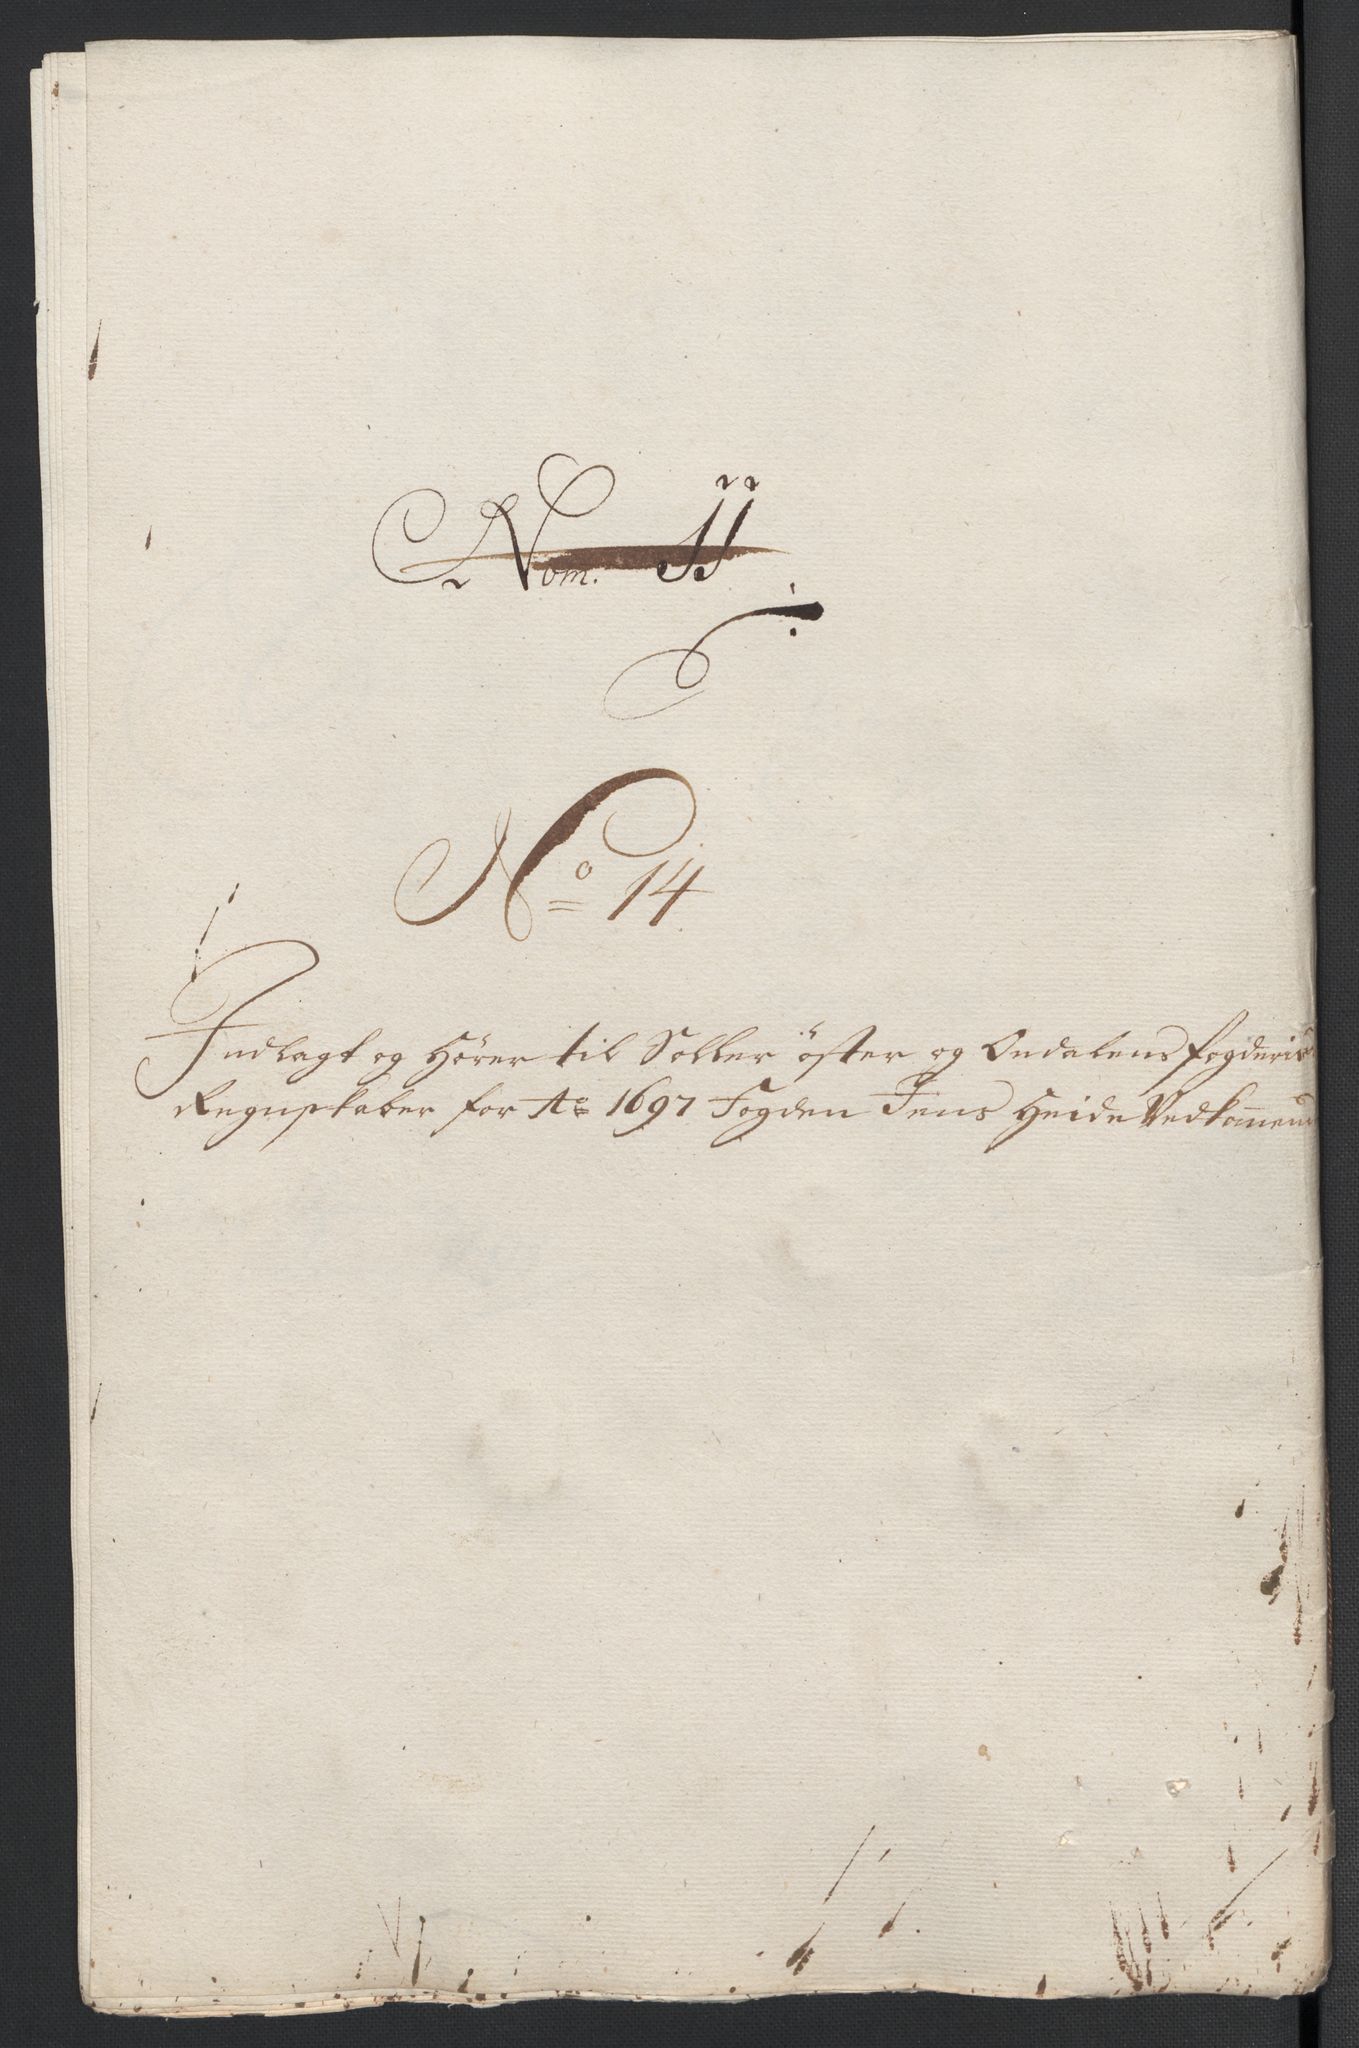 Nom. 11
No 14
Indlagt og Hörer til Soller öster og Ondalens fogderies
Regnskaber for Ao 1697 Fogden Jens Heide Vedkom̅end